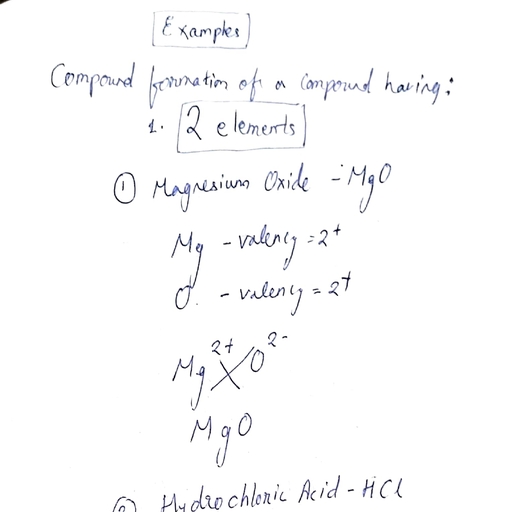 Examples
Compound formation of a compound having:
1. 2 elements
① Magnesium Oxide - MgO
Mg - valency = 2+
O - valency = 2+
Mg²⁺ O²⁻
MgO
② Hydrochloric Acid - HCl